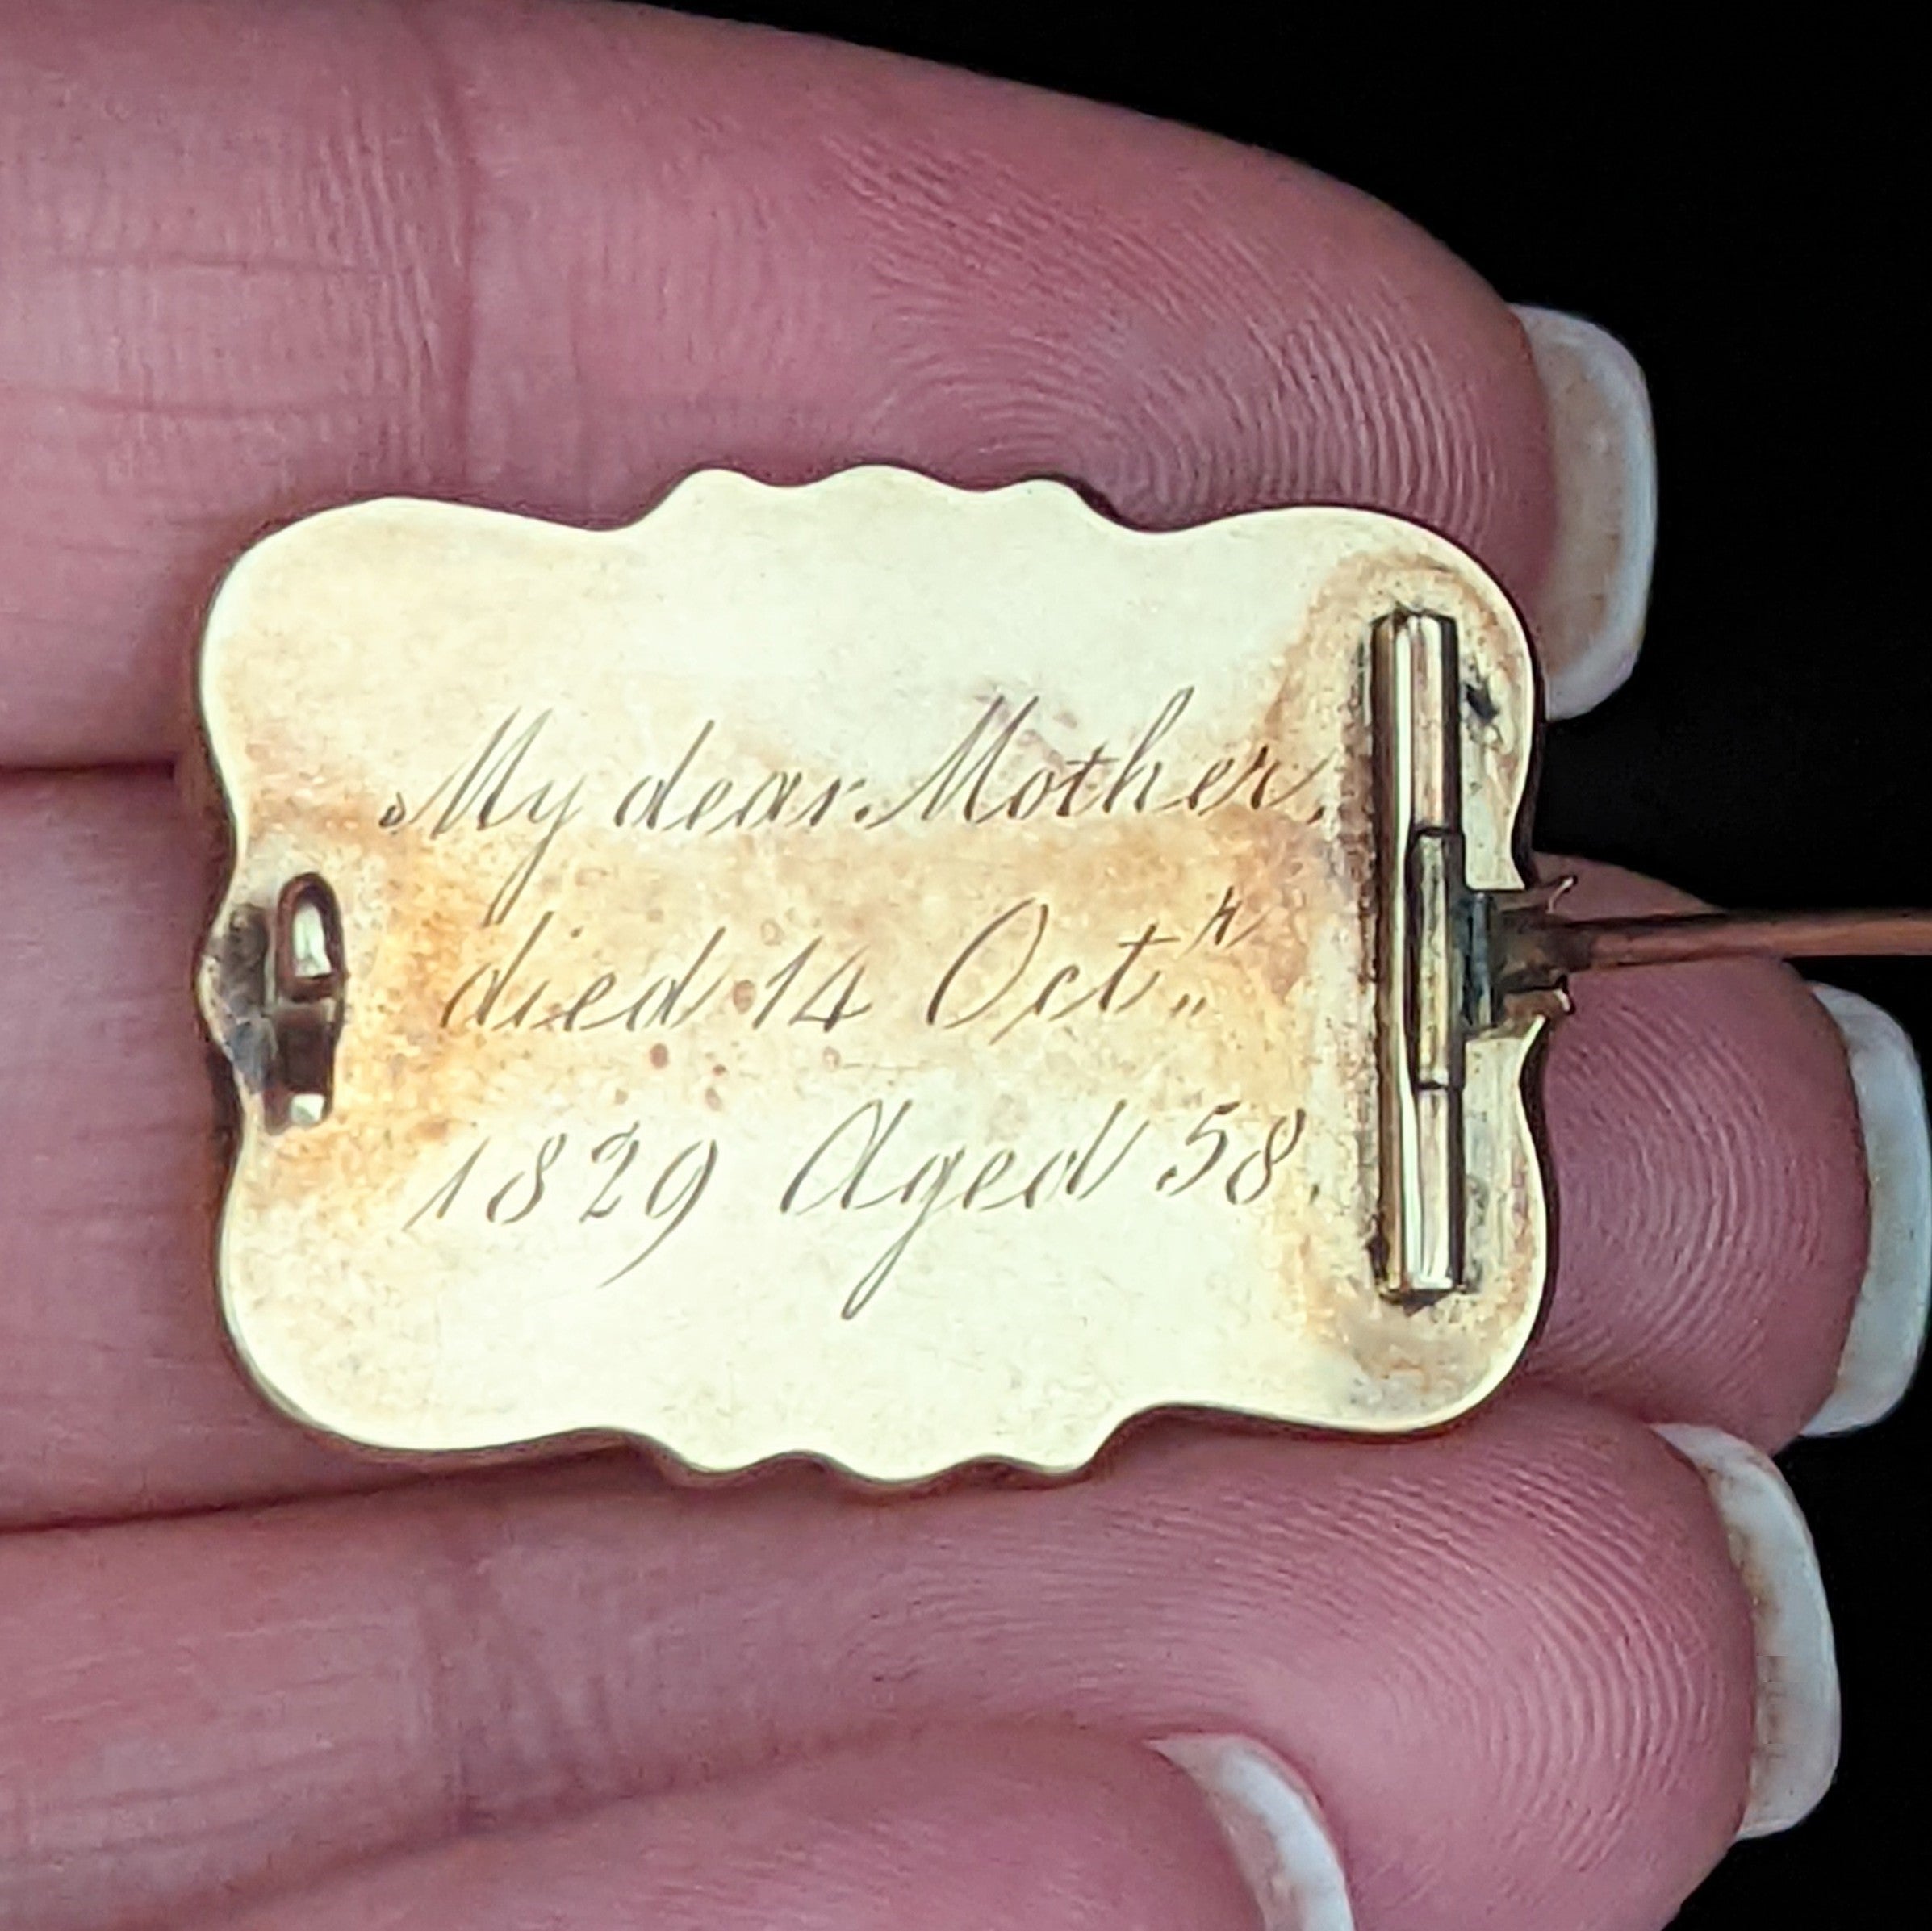 My dear Mother,
died 14 Octr
1829 Aged 58.